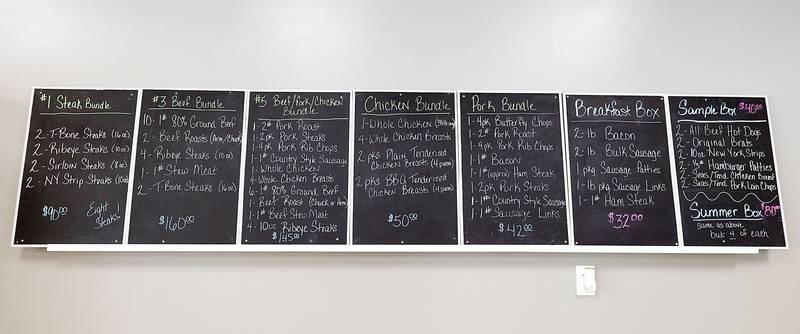 #1 Steak Bundle
2 - T-Bone Steaks (16oz)
2 - Ribeye Steaks (10oz)
2 - Sirloin Steaks (8oz)
2 - NY Strip Steaks (10oz)
$90.00
Eight
Steaks.
#3 Beef Bundle
10 - 1# 80% Ground Beef
2 - Beef Roasts (Arm/Chuck)
4 - Ribeye Steaks (10oz)
1 - 1# Stew Meat
2 - T-Bone Steaks (16oz)
$160.00
#5 Beef/Pork/Chicken
Bundle
1 - 2# Pork Roast
1 - 2pk Pork Steaks
1 - 4pk Pork Rib Chops
1 - 1# Country Style Sausage
1 - Whole Chicken
4 - Whole Chicken Breasts
6 - 1# 80% Ground Beef
1 - Beef Roast (Chuck or Arm)
1 - 1# Beef Stew Meat
4 - 10oz Ribeye Steaks
$145.00
Chicken Bundle
1 - Whole Chicken
4 - Whole Chicken Breasts
2 pks Plain Tenderized
Chicken Breasts (4 pieces)
2 pks BBQ Tenderized
Chicken Breasts (4 pieces)
$50.00
Pork Bundle
1 - 4pk Butterfly Chops
1 - 2# Pork Roast
1 - 4pk Pork Rib Chops
1 - 1# Bacon
1 - 1# (approx) Ham Steak
1 - 2pk Pork Steaks
1 - 1# Country Style Sausage
1 - 1# Sausage Links
$42.00
Breakfast Box
2 - lb Bacon
2 - lb Bulk Sausage
1 pkg Sausage Patties
1 - lb pkg Sausage Links
1 - 1# Ham Steak
$32.00
Sample Box $40.00
2 - All Beef Hot Dogs
2 - Original Brats
2 - 10oz New York Strips
2 - ¼# Hamburger Patties
2 - Seas/Tend. Chicken Breast
2 - Seas/Tend. Pork Loin Chops
Summer Box $80.00
same as above
but 4 of each